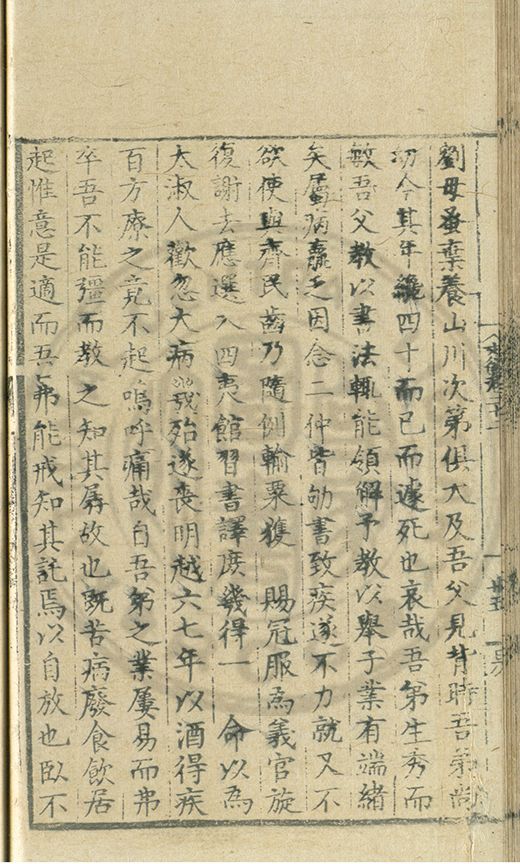 劉母蚤棄養山川次第俱大及吾父見背時吾弟尚
幼今其年纔四十而已而遽死也哀哉吾弟生秀而
敏吾父教以書法輒能領解予教以舉子業有端緒
矣屬病羸乏因念二仲皆劬書致疾遂不力就又不
欲使與齊民齒乃隨例輸粟獲 賜冠服為義官旋
復謝去應選入四夷館習書譯庶幾得一 命以為
太淑人歡忽大病濱殆遂喪明越六七年以酒得疾
百方療之竟不起嗚呼痛哉自吾弟之業屢易而弗
卒吾不能彊而教之知其孱故也既苦病廢食飲居
起惟意是適而吾弗能戒知其託焉以自放也臥不